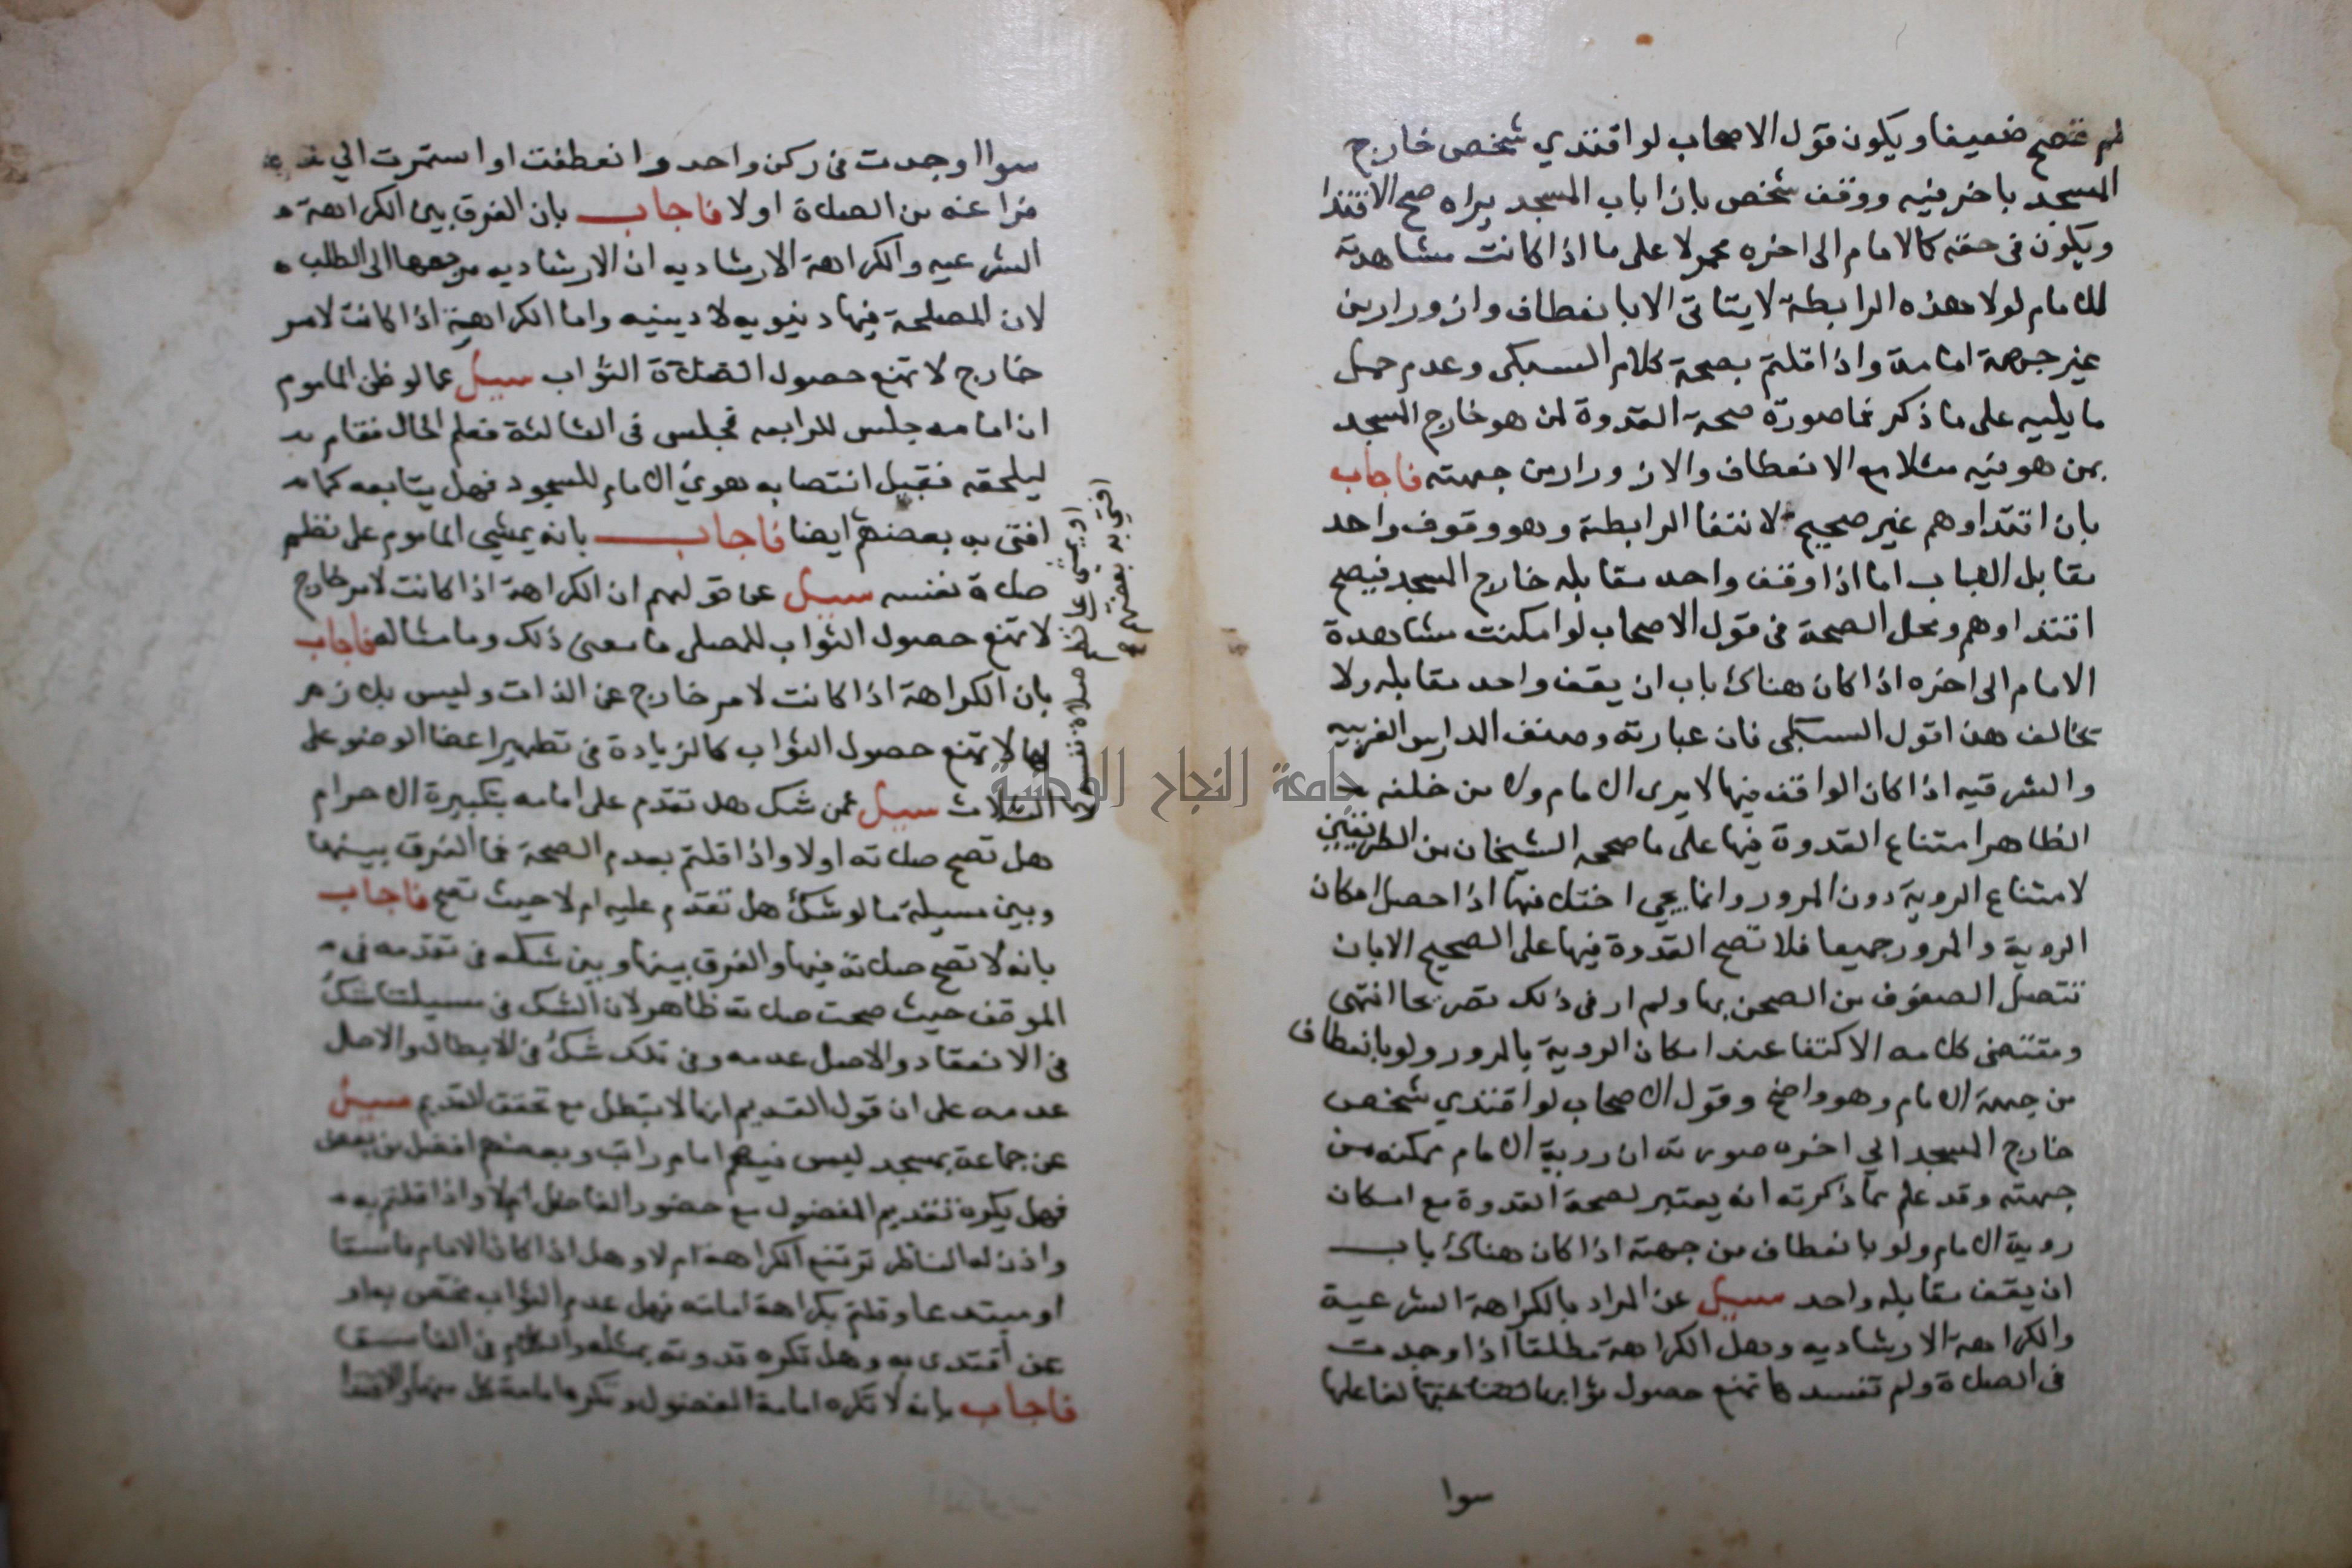 لم تصح ضعيفا ويكون قول الاصحاب لو اقتدي شخص خارج
المسجد باخر فيه ووقف شخص بازا باب المسجد يراه صح الاقتدا
ويكون في حقه كالامام الى اخره محمولا على ما اذا كانت مشاهدته
للامام لولا هذه الرابطة لا يتاتى الا بانعطاف وازورار من
غير جهة امامه واذا قلتم بصحة كلام السبكى وعدم حمل
ما يليه على ما ذكر فما صورة صحة القدوة لمن هو خارج المسجد
بمن هو فيه مثلا مع الانعطاف والازورار من جهته فاجاب
بان اقتداوهم غير صحيح لانتفا الرابطة وهو وقوف واحد
مقابل الباب اما اذا وقف واحد مقابله خارج المسجد فيصح
اقتداوهم ومحل الصحة في قول الاصحاب لو امكنت مشاهدة
الامام الى اخره اذا كان هناك باب ان يقف واحد مقابله ولا
تخالف هذا قول السبكى فان عبارته وصنف المدارس الغربيه
والشرقيه اذا كان الواقف فيها لا يرى الامام ولا من خلفه
الظاهر امتناع القدوة فيها على ما صححه الشيخان من الطريقين
لامتناع الروية دون المرور وانما يجي اختلافها اذا حصل امكان
الروية والمرور جميعا فلا تصح القدوة فيها على الصحيح الا بان
تتصل الصفوف من الصحن بها ولم ار في ذلك تصريحا انتهى
ومقتضى كلامه الاكتفا عند امكان الروية بالمرور ولو بانعطاف
من جهة الامام وهو واضح وقول الاصحاب لو اقتدي شخص
خارج المسجد الي اخره صورته ان روية الامام ممكنه من
جهته وقد علم مما ذكرته انه يعتبر لصحة القدوة مع امكان
روية الامام ولو بانعطاف من جهة اذا كان هناك باب
ان يقف مقابله واحد سيل عن المراد بالكراهة الشرعية
والكراهة الارشاديه وهل الكراهة مطلقا اذا وجدت
في الصلاة ولم تفسد ها تمنع حصول ثوابها لفاعلها
سوا
سوا اوجدت في ركن واحد وانعطفت او استمرت الي
فراغه من الصلاة اولا فاجاب بان الفرق بين الكراهة
الشرعيه والكراهة الارشاديه ان الارشاديه مرجعها الى الطلب
لان المصلحة فيها دنيويه لا دينيه واما الكراهة اذا كانت لامر
خارج لا تمنع حصول الثواب سيل عما لو ظن الماموم
ان امامه جلس للرابعه فجلس في الثالثة فعلم الحال فقام
ليلحقه فقبل انتصابه هوي الامام للسجود فهل يتابعه كما
افتى به بعضهم ايضا فاجاب بانه يمشي الماموم على نظم
صلاة نفسه سيل عن قولهم ان الكراهة اذا كانت لامر خارج
لا تمنع حصول الثواب للمصلى ما معنى ذلك وما مثاله فاجاب
بان الكراهة اذا كانت لامر خارج عن الذات وليس بلازم
لها لا تمنع حصول الثواب كالزيادة في تطهير اعضا الوضو على
الثلاث سيل عمن شك هل تقدم على امامه بتكبيرة الاحرام
هل تصح صلاته اولا واذا قلتم بعدم الصحة فما الفرق بينها
وبين مسيلة ما لو شك هل تقدم عليه ام لا حيث تصح فاجاب
بانه لا تصح صلاته فيها والفرق بينها وبين شكه في تقدمه في
الموقف حيث صحت صلاته ظاهر لان الشك في مسيلتنا شك
في الانعقاد والاصل عدمه وفي تلك شك في الابطال والاصل
عدمه على ان قول القديم انها لا تبطل مع تحقق التقديم سيل
عن جماعة بمسجد ليس فيهم امام راتب وبعضهم افضل من بعض
فهل يكره تقديم المفضول مع حضور الفاضل ام لا واذا قلتم به
واذن له الناظر ترتفع الكراهة ام لا وهل اذا كان الامام فاسقا
او مبتدعا وقلتم بكراهة امامته فهل عدم الثواب مختص به او
عن اقتدى به وهل تكره قدوته بمثله في الفاسق
فاجاب بانه لا تكره امامة المفضول وتكره امامة كل منها والاقتدا
او يمشي على نظم صلاة نفسه
افتي به بعضهم
جامعة النجاح الوطنية